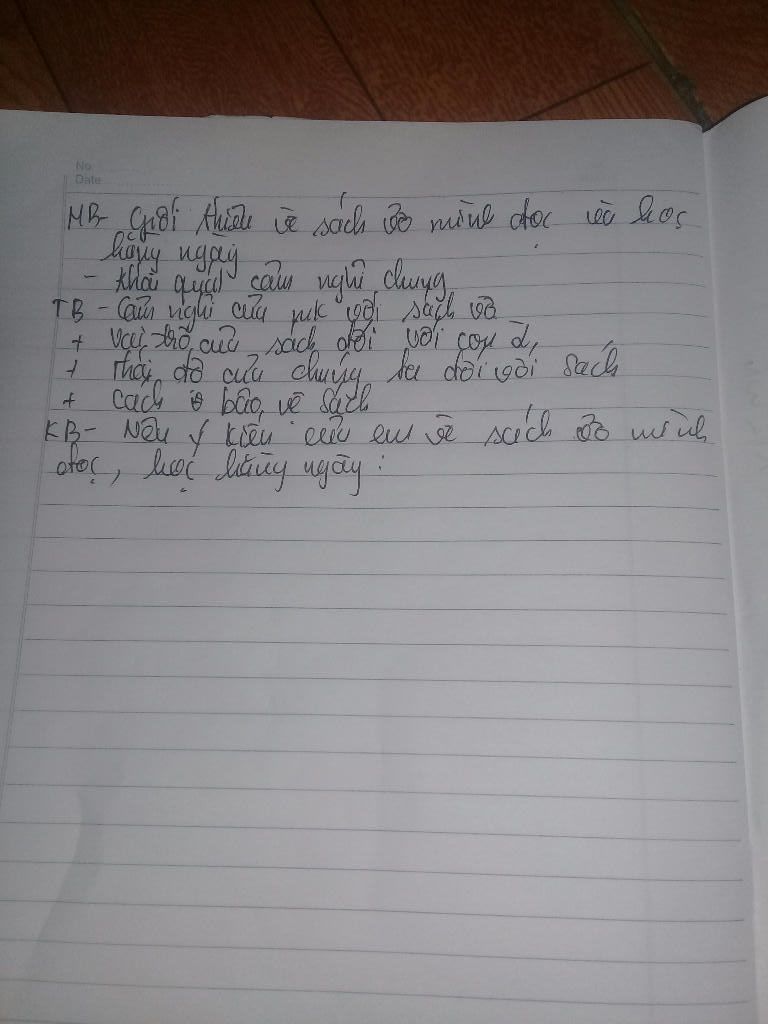 No
Date
MB- Giới thiệu về sách vở mình đọc và học
hằng ngày
- Khái quát cảm nghĩ chung
TB - Cảm nghĩ của mk với sách vở
+ Vai trò của sách đối với con
+ Thái độ của chúng ta đối với sách
+ Cách bảo vệ sách
KB- Nêu ý kiến của em về sách vở mình
đọc, học hằng ngày: